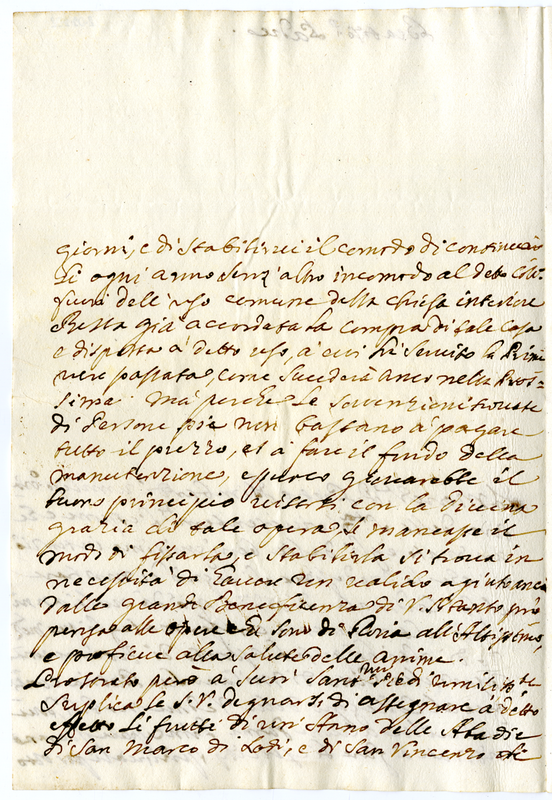 giorni, e di stabilirvi il comodo di continuar
li ogni anno senz'altro incomodo al detto
fuori dell'uso comune della Chiesa inferiore
Resta già accordata la compra di tale Casa
e disposta à detto uso, à cui hà servito la Prima
vera passata, come succederà anco nella Pros-
sima. Mà perche le sovvenzioni trovate
di Persone pie non bastano à pagare
tutto il prezzo, et à fare il fondo della
manutenzione, e purco il
buon principio con la Divina
grazia di tale opera se mancasse il
modo di fissarla, e stabilirla si trova in
necessità di un valido agiuto anco
dalla grande Beneficenza di V. Stà tanto pro
pensa alle opere che sono di Gloria all'Altissimo,
e proficue alla salute delle anime.
Prostrato però à suoi Santmi Piedi umilmte
supplica la S. V. degnarsi di assegnare à detto
effetto li frutti di un'Anno delle Abadie
di San Marco di Lodi, e di San Vincenzo